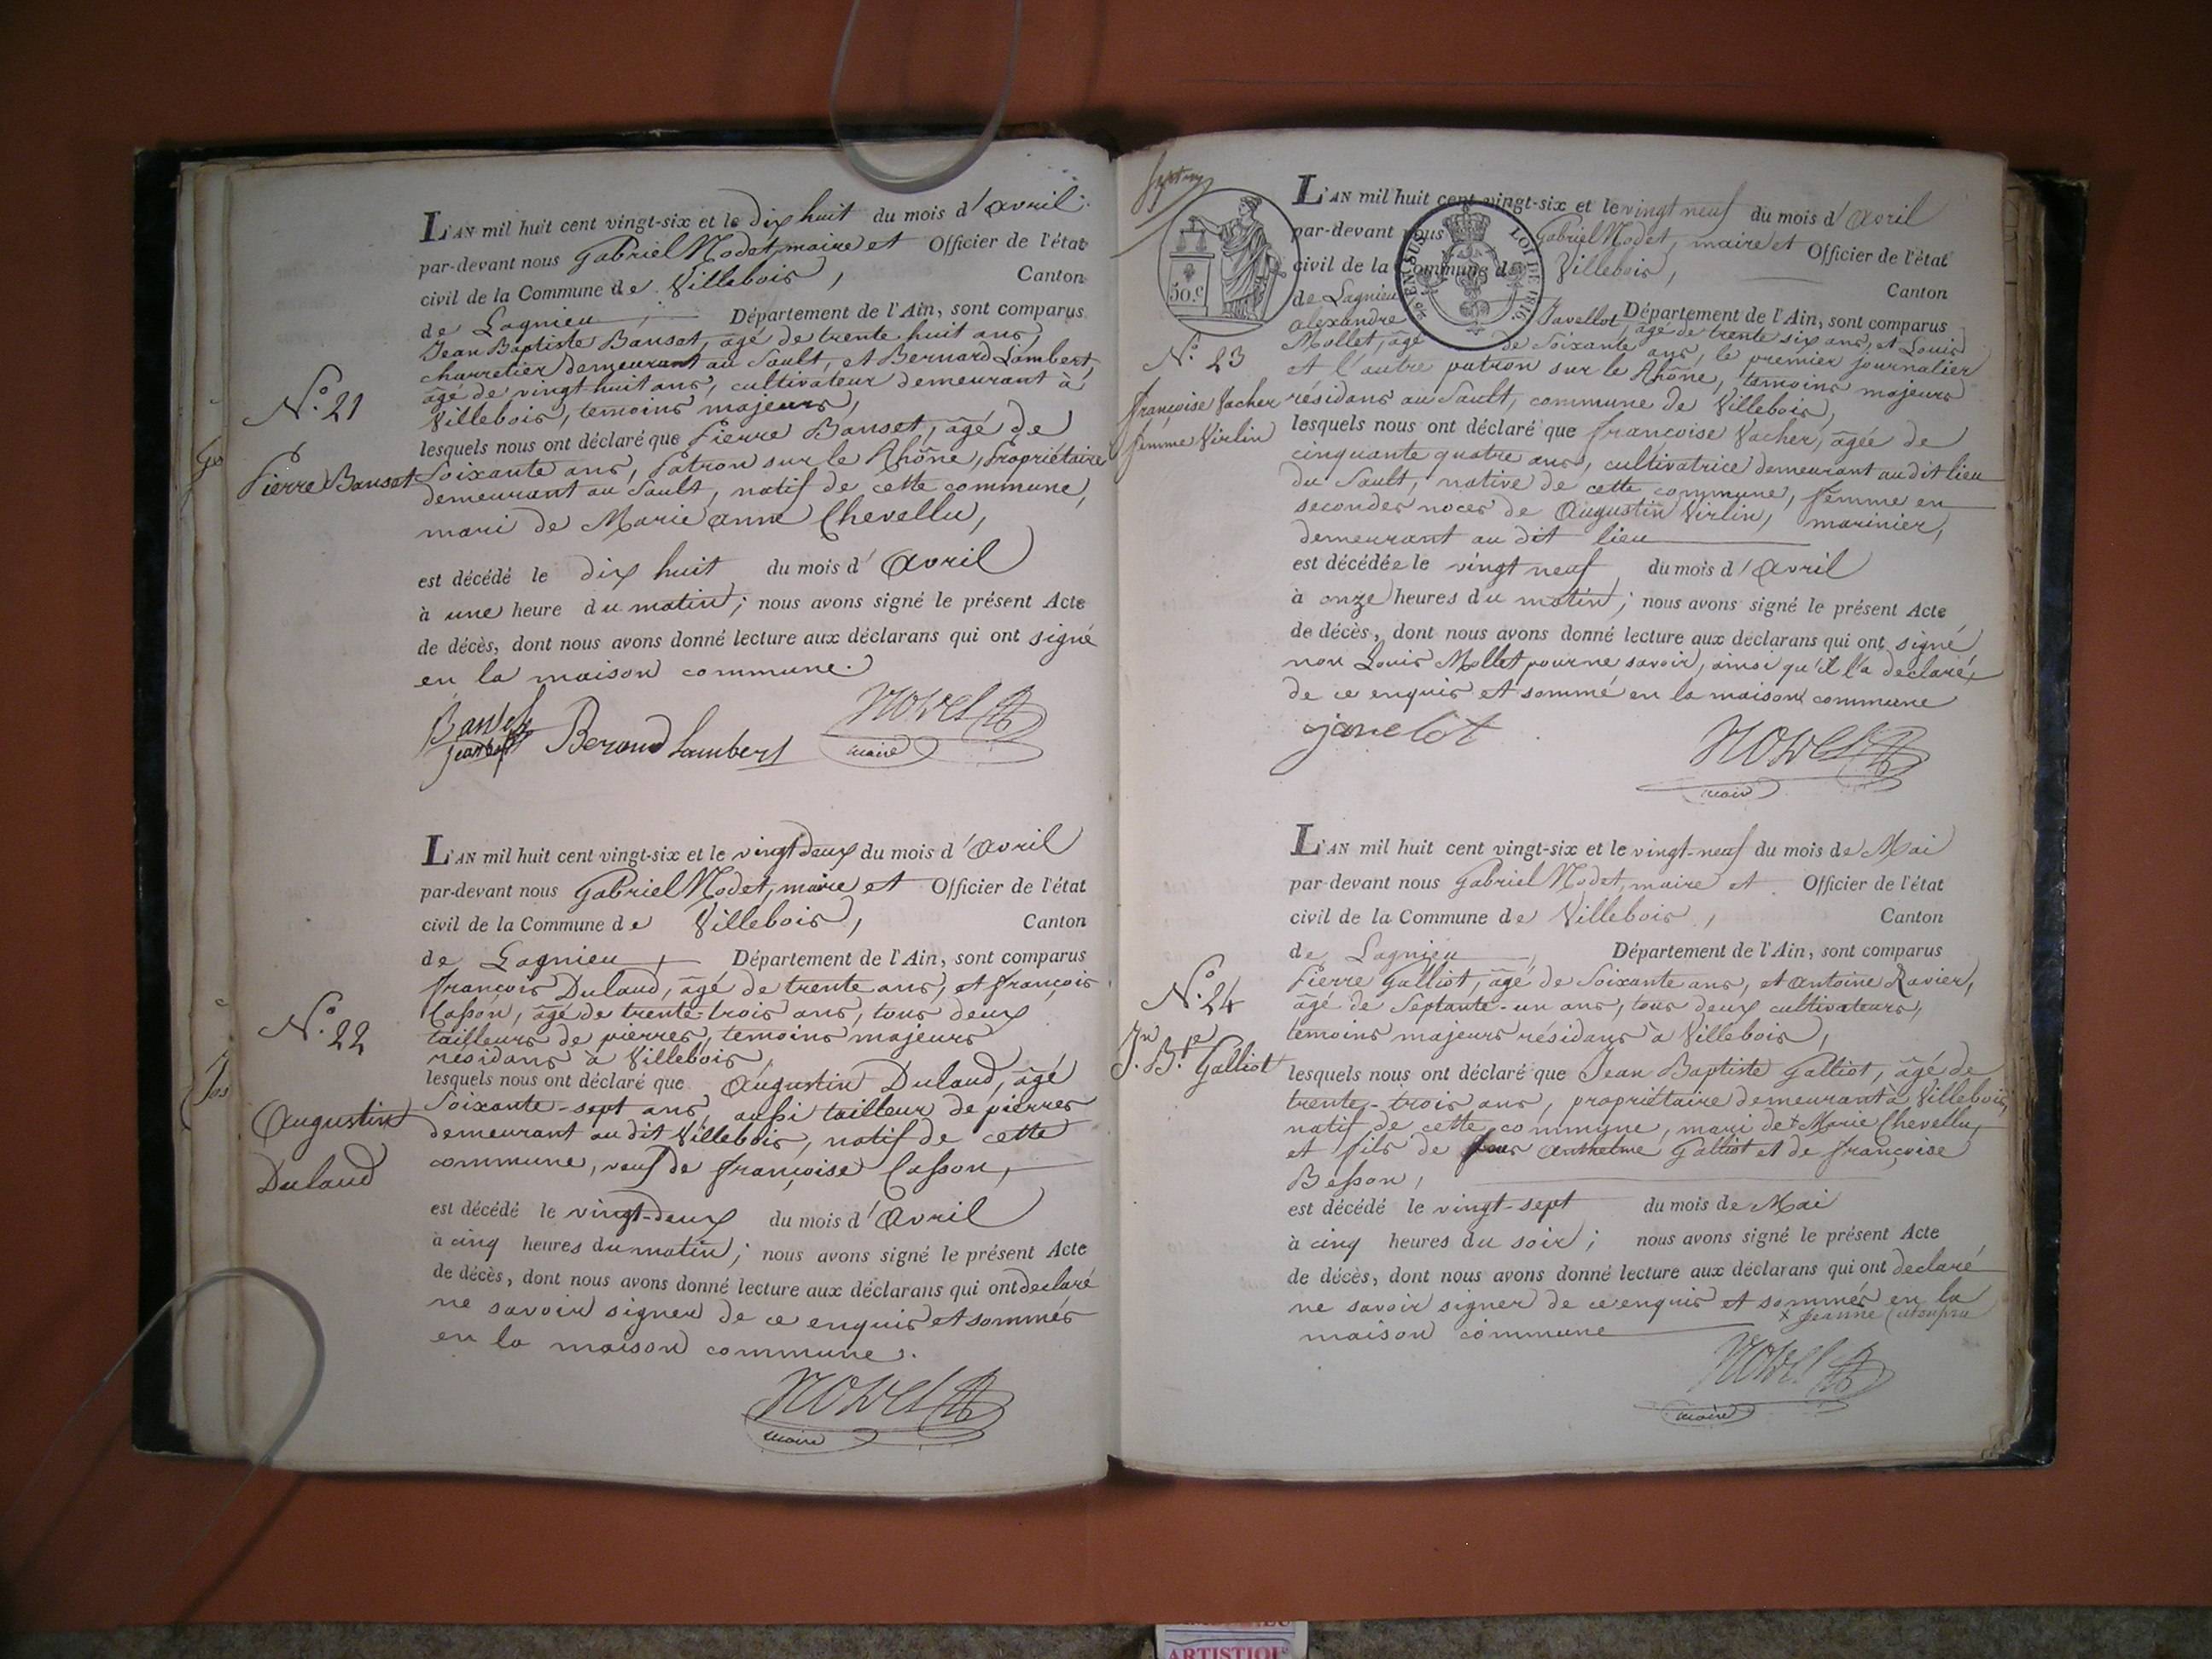 L'AN mil huit cent vingt-six et le dix huit du mois d'avril
par-devant nous Gabriel Nodet, maire et Officier de l'état
civil de la Commune de Villebois, Canton
de Lagnieu, Département de l'Ain, sont comparus
Jean Baptiste Banset, âgé de trente huit ans,
charretier demeurant au Sault, et Bernard Lambert,
âgé de vingt huit ans, cultivateur demeurant à
Villebois, temoins majeurs,
N.° 21
lesquels nous ont déclaré que Pierre Banset, âgé de
Pierre Banset
Soixante ans, Patron sur le Rhône, Propriétaire
demeurant au Sault, natif de cette commune,
mari de Marie anne Chevellu,
est décédé le dix huit du mois d'Avril
à une heure du matin; nous avons signé le présent Acte
de décès, dont nous avons donné lecture aux déclarans qui ont signé
en la maison commune.
Banset
jean bap
Berand Lambert
maire
L'AN mil huit cent vingt-six et le vingt deux du mois d'Avril
par-devant nous Gabriel Nodet, maire et Officier de l'état
civil de la Commune de Villebois, Canton
de Lagnieu, Département de l'Ain, sont comparus
françois Dulaud, âgé de trente ans, et françois
Casson, âgé de trente-trois ans, tous deux
N.° 22
tailleurs de pierres, temoins majeurs
résidans à Villebois,
lesquels nous ont déclaré que Augustin Dulaud, âgé
Augustin
Dulaud
Soixante-sept ans, aussi tailleur de pierres
demeurant au dit Villebois, natif de cette
commune, veuf de françoise Casson,
est décédé le vingt-deux du mois d'Avril
à cinq heures du matin; nous avons signé le présent Acte
de décès, dont nous avons donné lecture aux déclarans qui ont declaré
ne savoir signer de ce enquis et sommés
en la maison commune.
maire
50.c
EN SUS
LOI DE 1816
L'AN mil huit cent vingt-six et le vingt neuf du mois d'Avril
par-devant nous Gabriel Nodet, maire et Officier de l'état
civil de la Commune de Villebois, Canton
de Lagnieu Département de l'Ain, sont comparus
alexandre Javellot, âgé de trente six ans, et Louis
Mollet, âgé de Soixante ans, le premier journalier
N.° 23
et l'autre patron sur le Rhône, temoins majeurs
françoise Vacher
femme Virlin
résidans au Sault, commune de Villebois,
lesquels nous ont déclaré que françoise Vacher, âgée de
cinquante quatre ans, cultivatrice demeurant au dit lieu
du Sault, native de cette commune, femme en
secondes noces de Augustin Virlin, marinier,
demeurant au dit lieu
est décédée le vingt neuf du mois d'Avril
à onze heures du matin; nous avons signé le présent Acte
de décès, dont nous avons donné lecture aux déclarans qui ont signé,
non Louis Mollet pour ne savoir, ainsi qu'il l'a declaré,
de ce enquis et sommé en la maison commune
javelot
maire
L'AN mil huit cent vingt-six et le vingt-neuf du mois de Mai
par-devant nous Gabriel Nodet, maire et Officier de l'état
civil de la Commune de Villebois, Canton
de Lagnieu, Département de l'Ain, sont comparus
Pierre Galliot, âgé de Soixante ans, et Antoine Ravier,
N.° 24
âgé de Septante-un ans, tous deux cultivateurs,
témoins majeurs résidans à Villebois,
Jn. Bte. Galliot
lesquels nous ont déclaré que Jean Baptiste Galliot, âgé de
trente-trois ans, propriétaire demeurant à Villebois,
natif de cette commune, mari de x Marie Chevellu,
et fils de feus Anthelme Galliot et de françoise
Besson,
est décédé le vingt-sept du mois de Mai
à cinq heures du soir; nous avons signé le présent Acte
de décès, dont nous avons donné lecture aux déclarans qui ont declaré
ne savoir signer de ce enquis et sommés en la
maison commune x Jeanne
maire
ARTISTIQUE